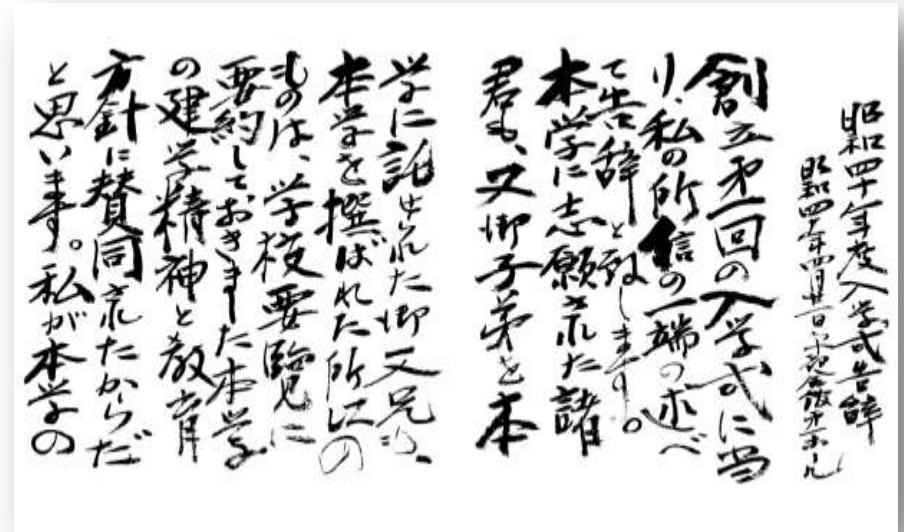 昭和四十年度入学式告辞
昭和四十年四月廿一日
創立才一回の入学式に当
り、私の所信の一端の述べ
て告辞と致します。
本学に志願された諸
君も、又御子弟を本
学に託せられた御父兄が、
本学を撰ばれた所以の
ものは、学校要覧に
要約しておきました本学
の建学精神と教育
方針に賛同されたからだ
と思います。私が本学の